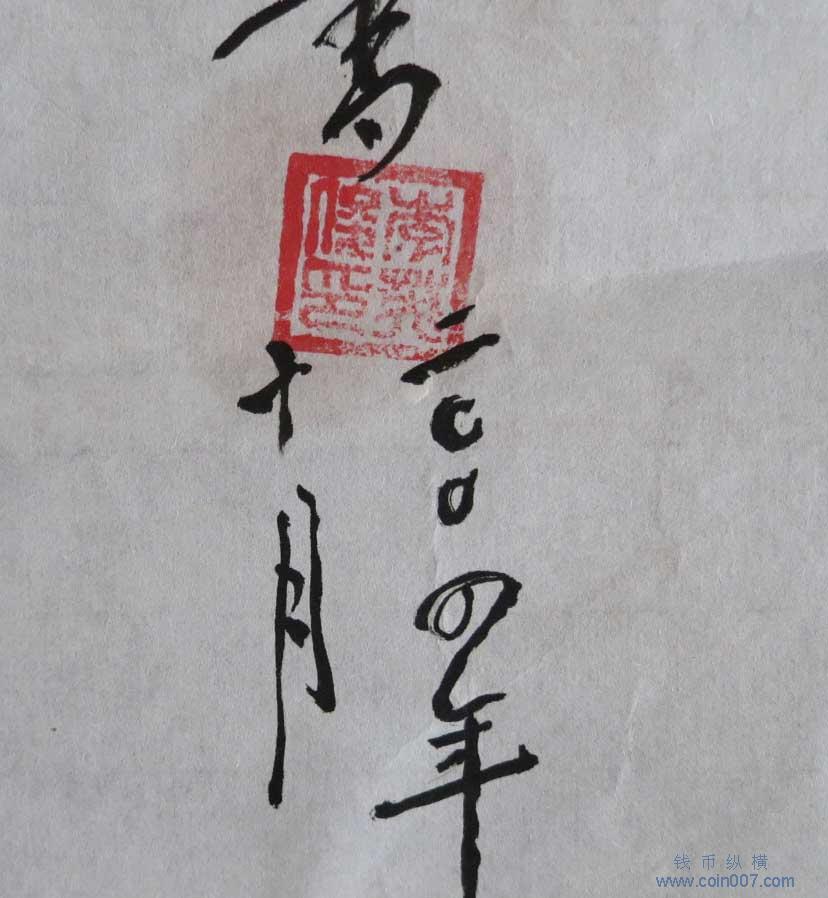 書
二〇〇四年
十月
钱币纵横
www.coin007.com